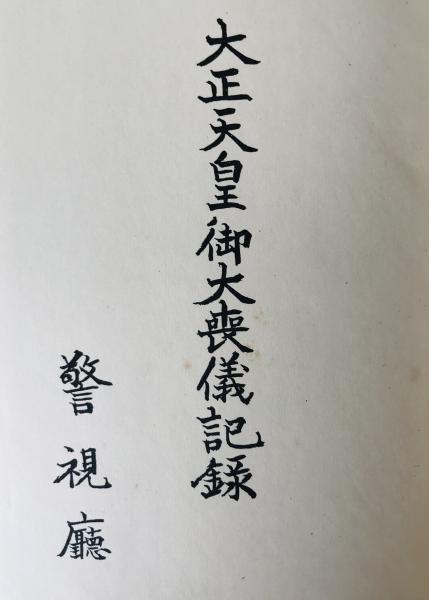 大正天皇御大喪儀記録
警視廳